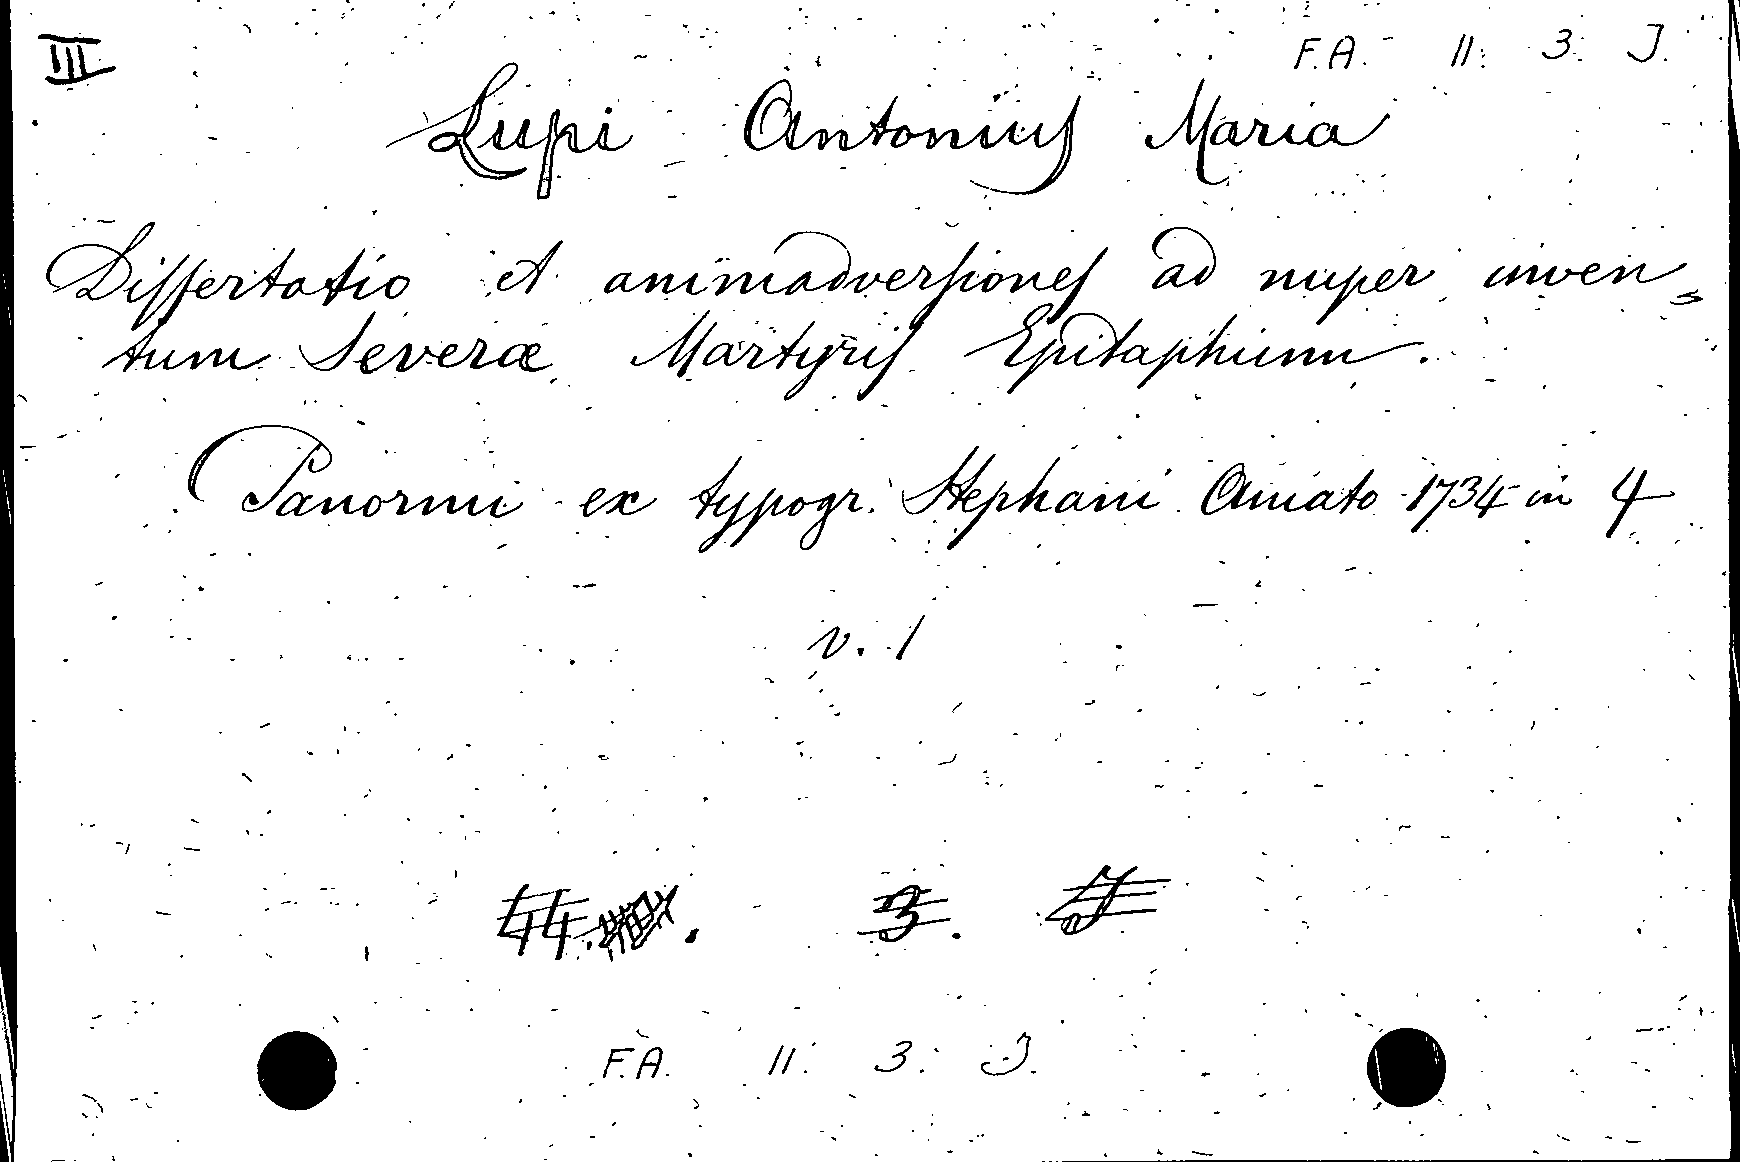 III
F.A. 11. 3. J.
Lupi Antonius Maria
Dissertatio et animadversiones ad nuper inven=
tum Severæ Martyris Epitaphium.
Panormi ex typogr. Stephani Amato 1734 in 4
v. 1
44. 3. J
F.A. 11. 3. J.